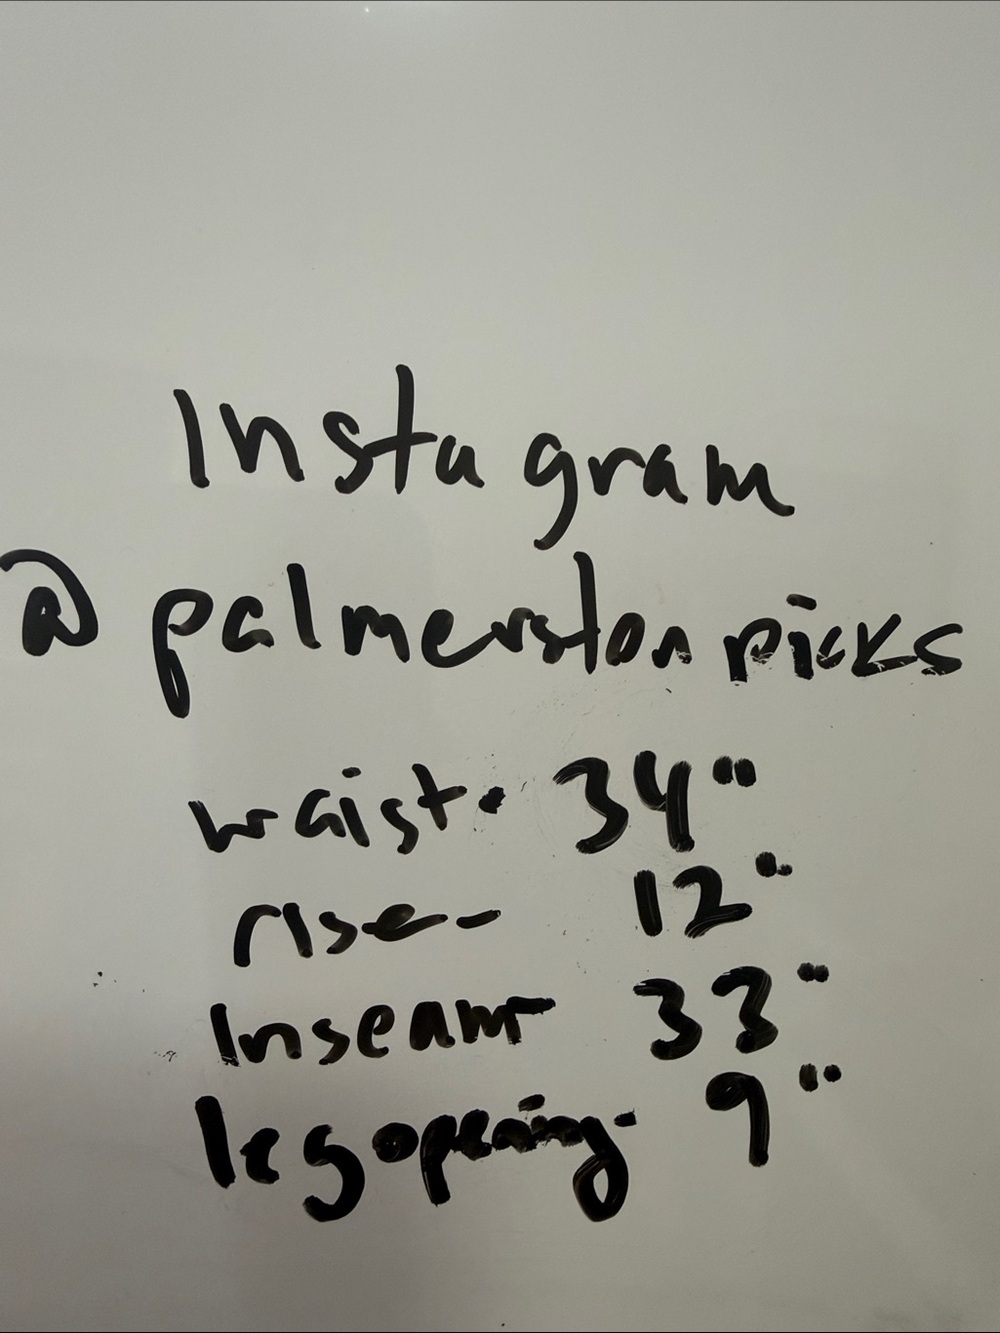 Instagram
@palmerstonpicks
waist. 34"
rise- 12"
Inseam- 33"
leg opening. 9"